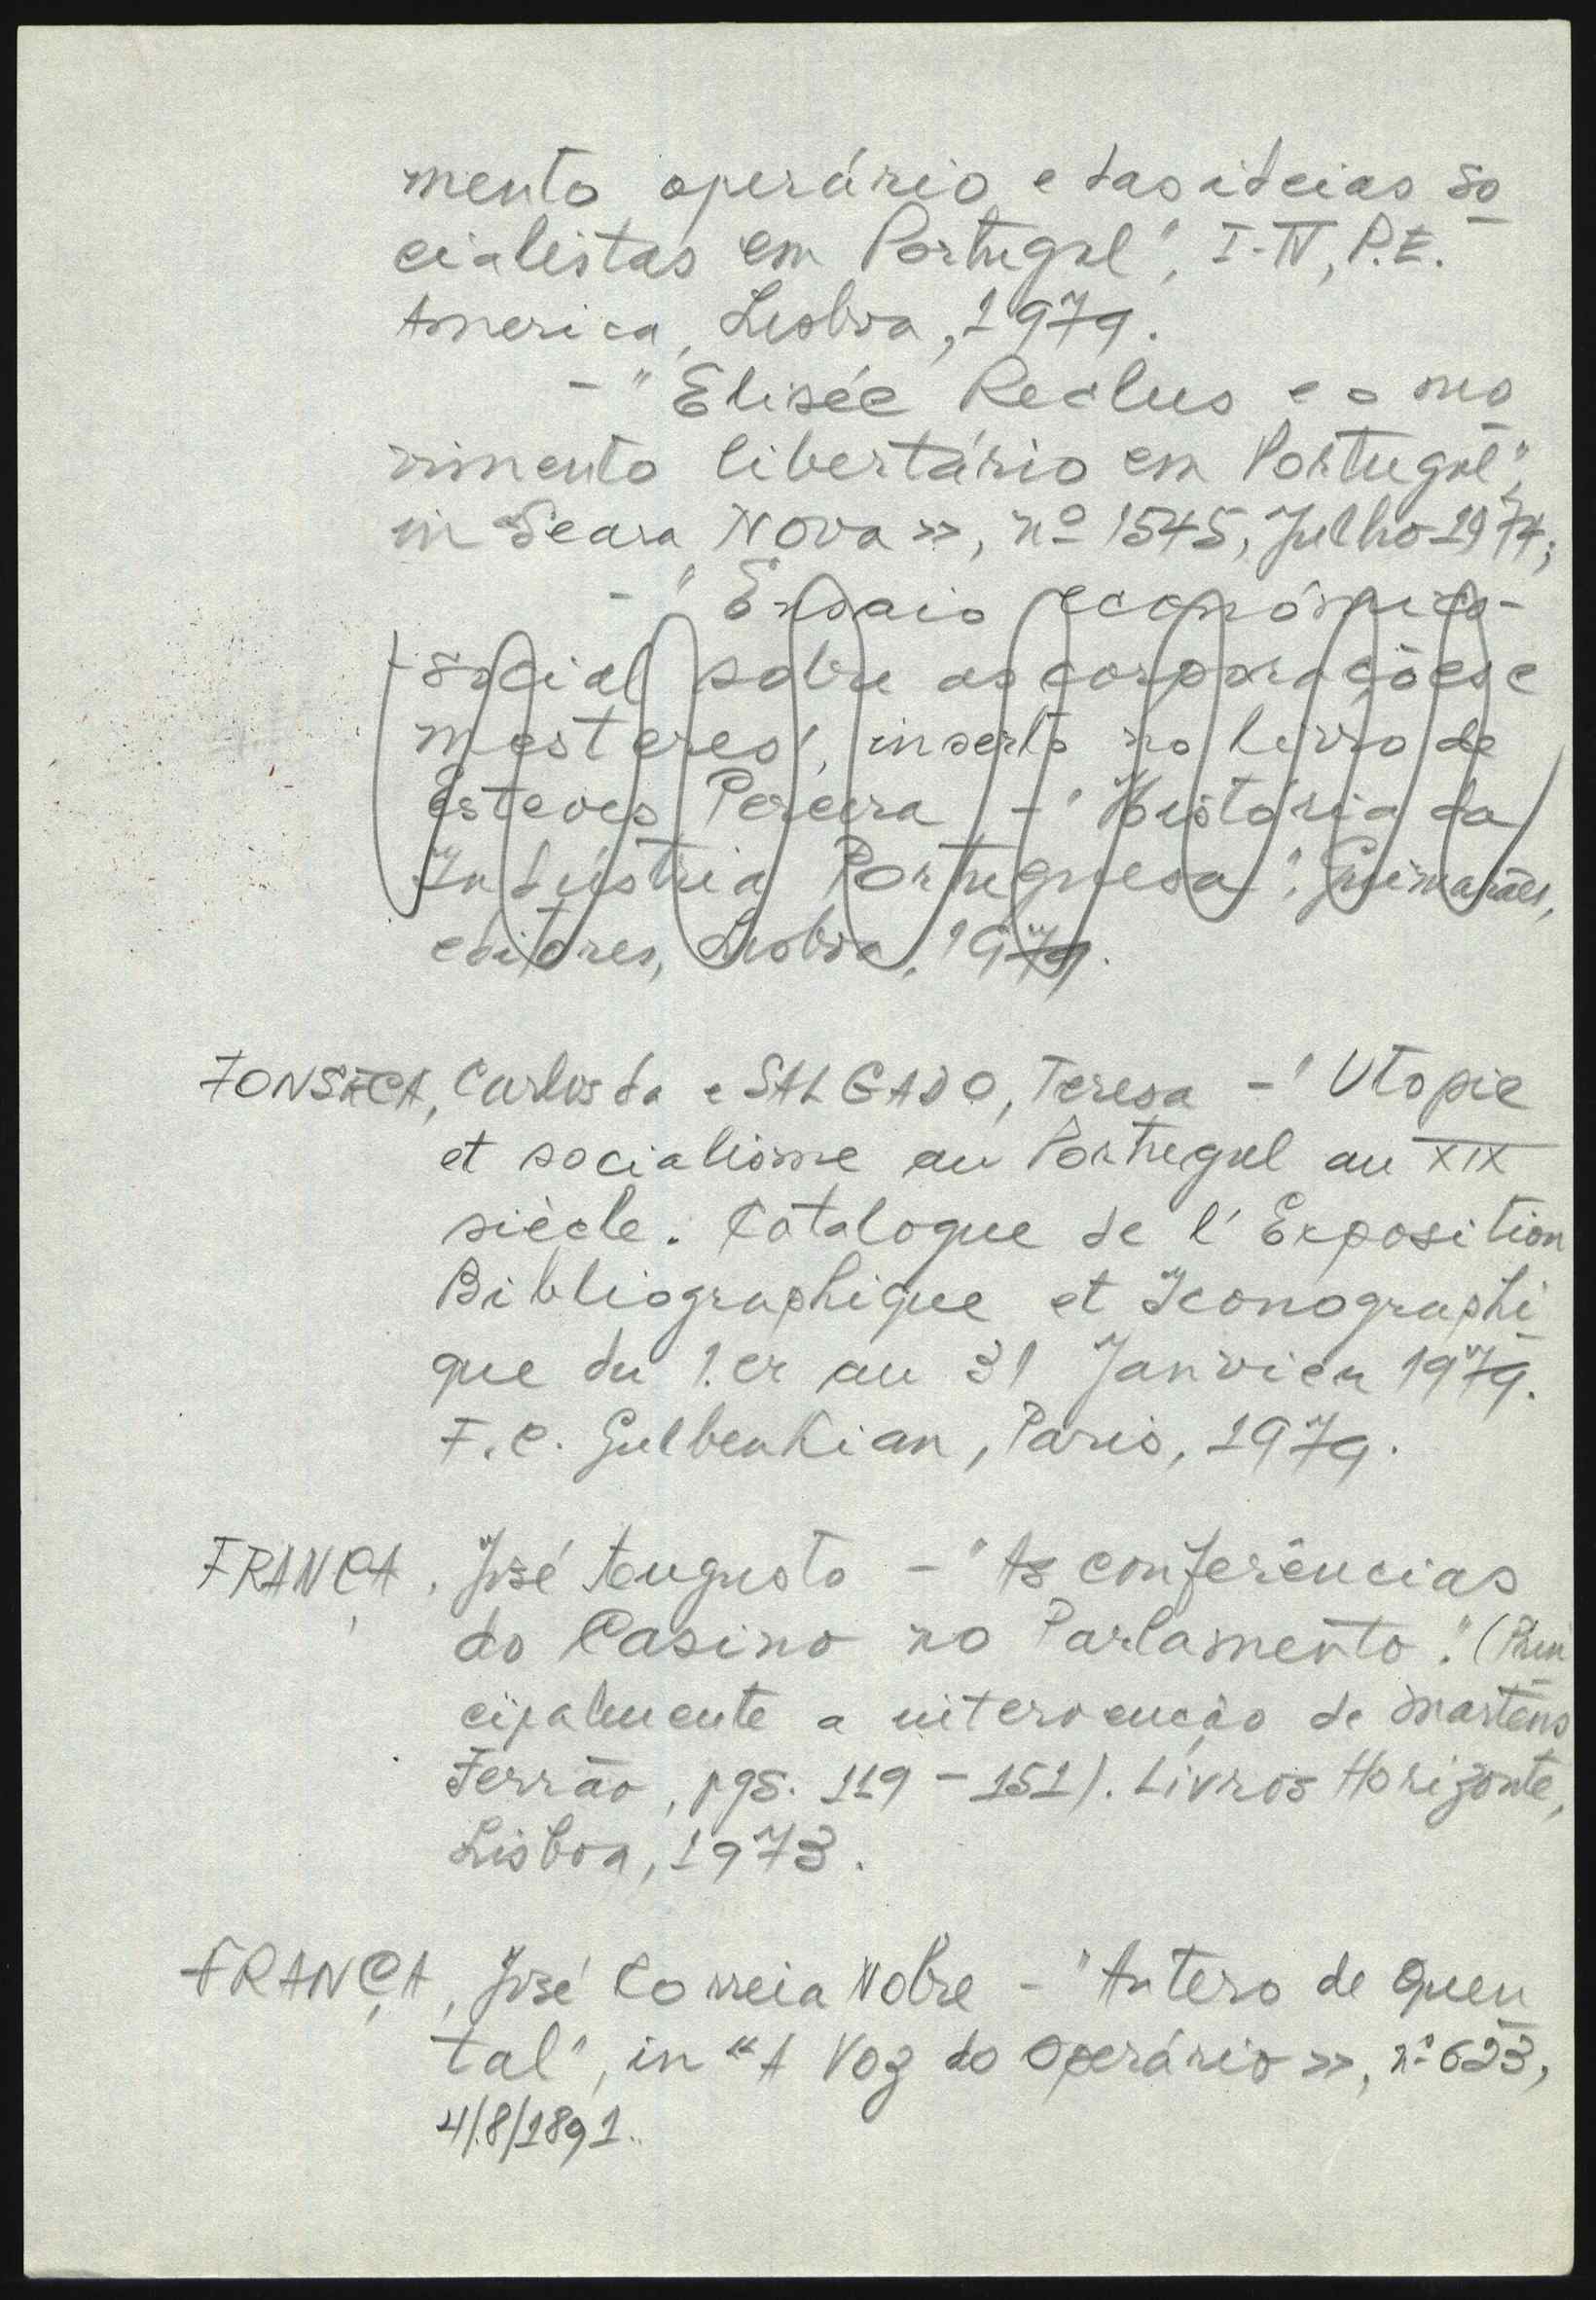 mento operário e das ideias so
cialistas em Portugal", I-IV, P.E.
America, Lisboa, 1979.
- "Elisée Reclus e o mo
vimento libertário em Portugal",
in «Seara Nova», nº 1545, Julho 1974;
- "Ensaio económico-
-social sobre as corporações e
mesteres", inserto no livro de
Esteves Pereira - "História da
Indústria Portuguesa", Guimarães,
editores, Lisboa, 1979.
FONSECA, Carlos da e SALGADO, Teresa - "Utopie
et socialisme au Portugal au XIX
siècle. Catalogue de l'Exposition
Bibliographique et Iconographi
que du 1.er au 31 Janvier 1979.
F.C. Gulbenkian, Paris, 1979.
FRANÇA, José Augusto - "As conferências
do Casino no Parlamento". (Prin
cipalmente a intervenção de Martens
Ferrão, pgs. 119-151). Livros Horizonte,
Lisboa, 1973.
FRANÇA, José Correia Nobre - "Antero de Quen
tal", in «A Voz do Operário», nº 623,
4/8/1891.